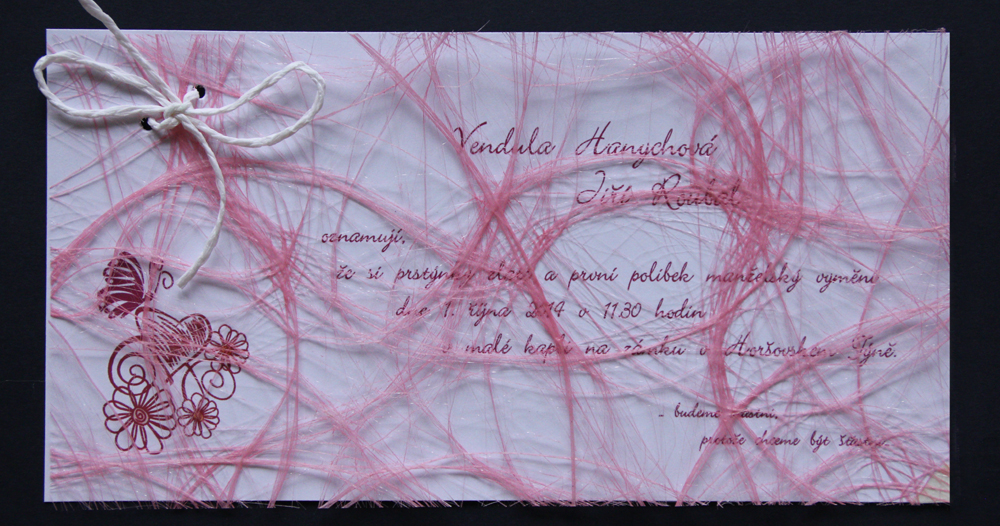 Vendula Hanychová
Jiří Roubal
oznamují,
že si prstýnky zlaté a první polibek manželský vymění
dne 1. října 2014 v 11.30 hodin
v malé kapli na zámku v Horšovském Týně.
- budeme šťastni,
protože chceme být šťastni.